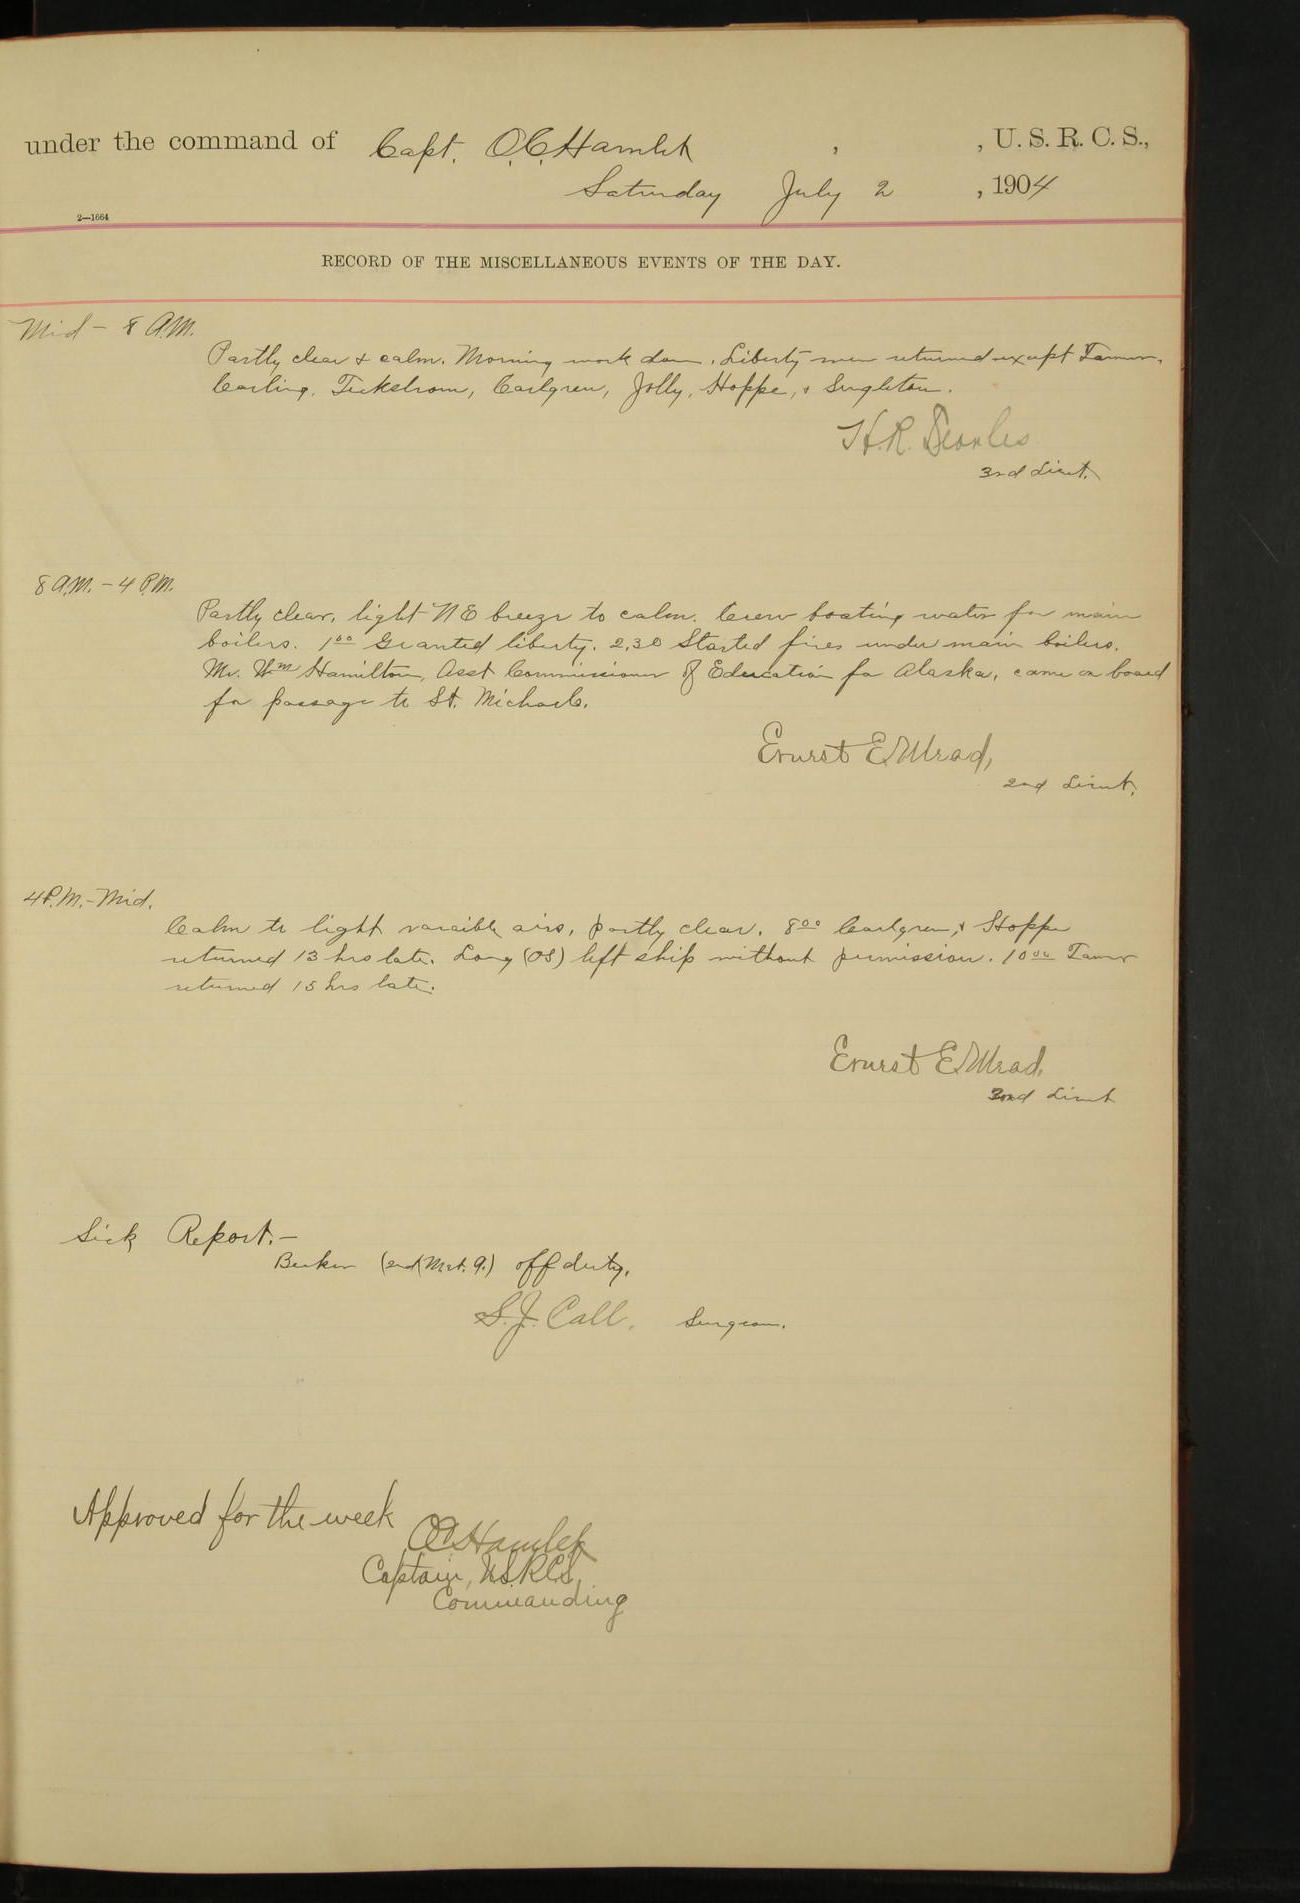 under the command of Capt. O.C. Hamlet , , U. S. R. C. S.,
Saturday July 2 , 1904
2—1664
RECORD OF THE MISCELLANEOUS EVENTS OF THE DAY.
Mid – 8 A.M.
Partly clear & calm. Morning work done. Liberty men returned except
Carling, Tickstrom, Carlgren, Jolly, Hoppe, & Singleton.
H.R. Searles
3rd Lieut.
8 A.M. – 4 P.M.
Partly clear, light NE breeze to calm. Crew boating water for main
boilers. 1⁰⁰ Granted liberty. 2.30 Started fires under main boilers.
Mr. Wm Hamilton, Asst Commissioner of Education for Alaska, came on board
for passage to St. Michaels.
Ernest E. Mead,
2nd Lieut.
4 P.M. – Mid.
Calm to light variable airs, partly clear. 8⁰⁰ Carlgren, & Hoppe
returned 13 hrs late. Long (OS) left ship without permission. 10⁰⁰
returned 15 hrs late.
Ernest E. Mead,
2nd Lieut
Sick Report. –
Becker off duty.
S.J. Call. Surgeon.
Approved for the week
O.C. Hamlet
Captain, U.S.R.C.S,
Commanding